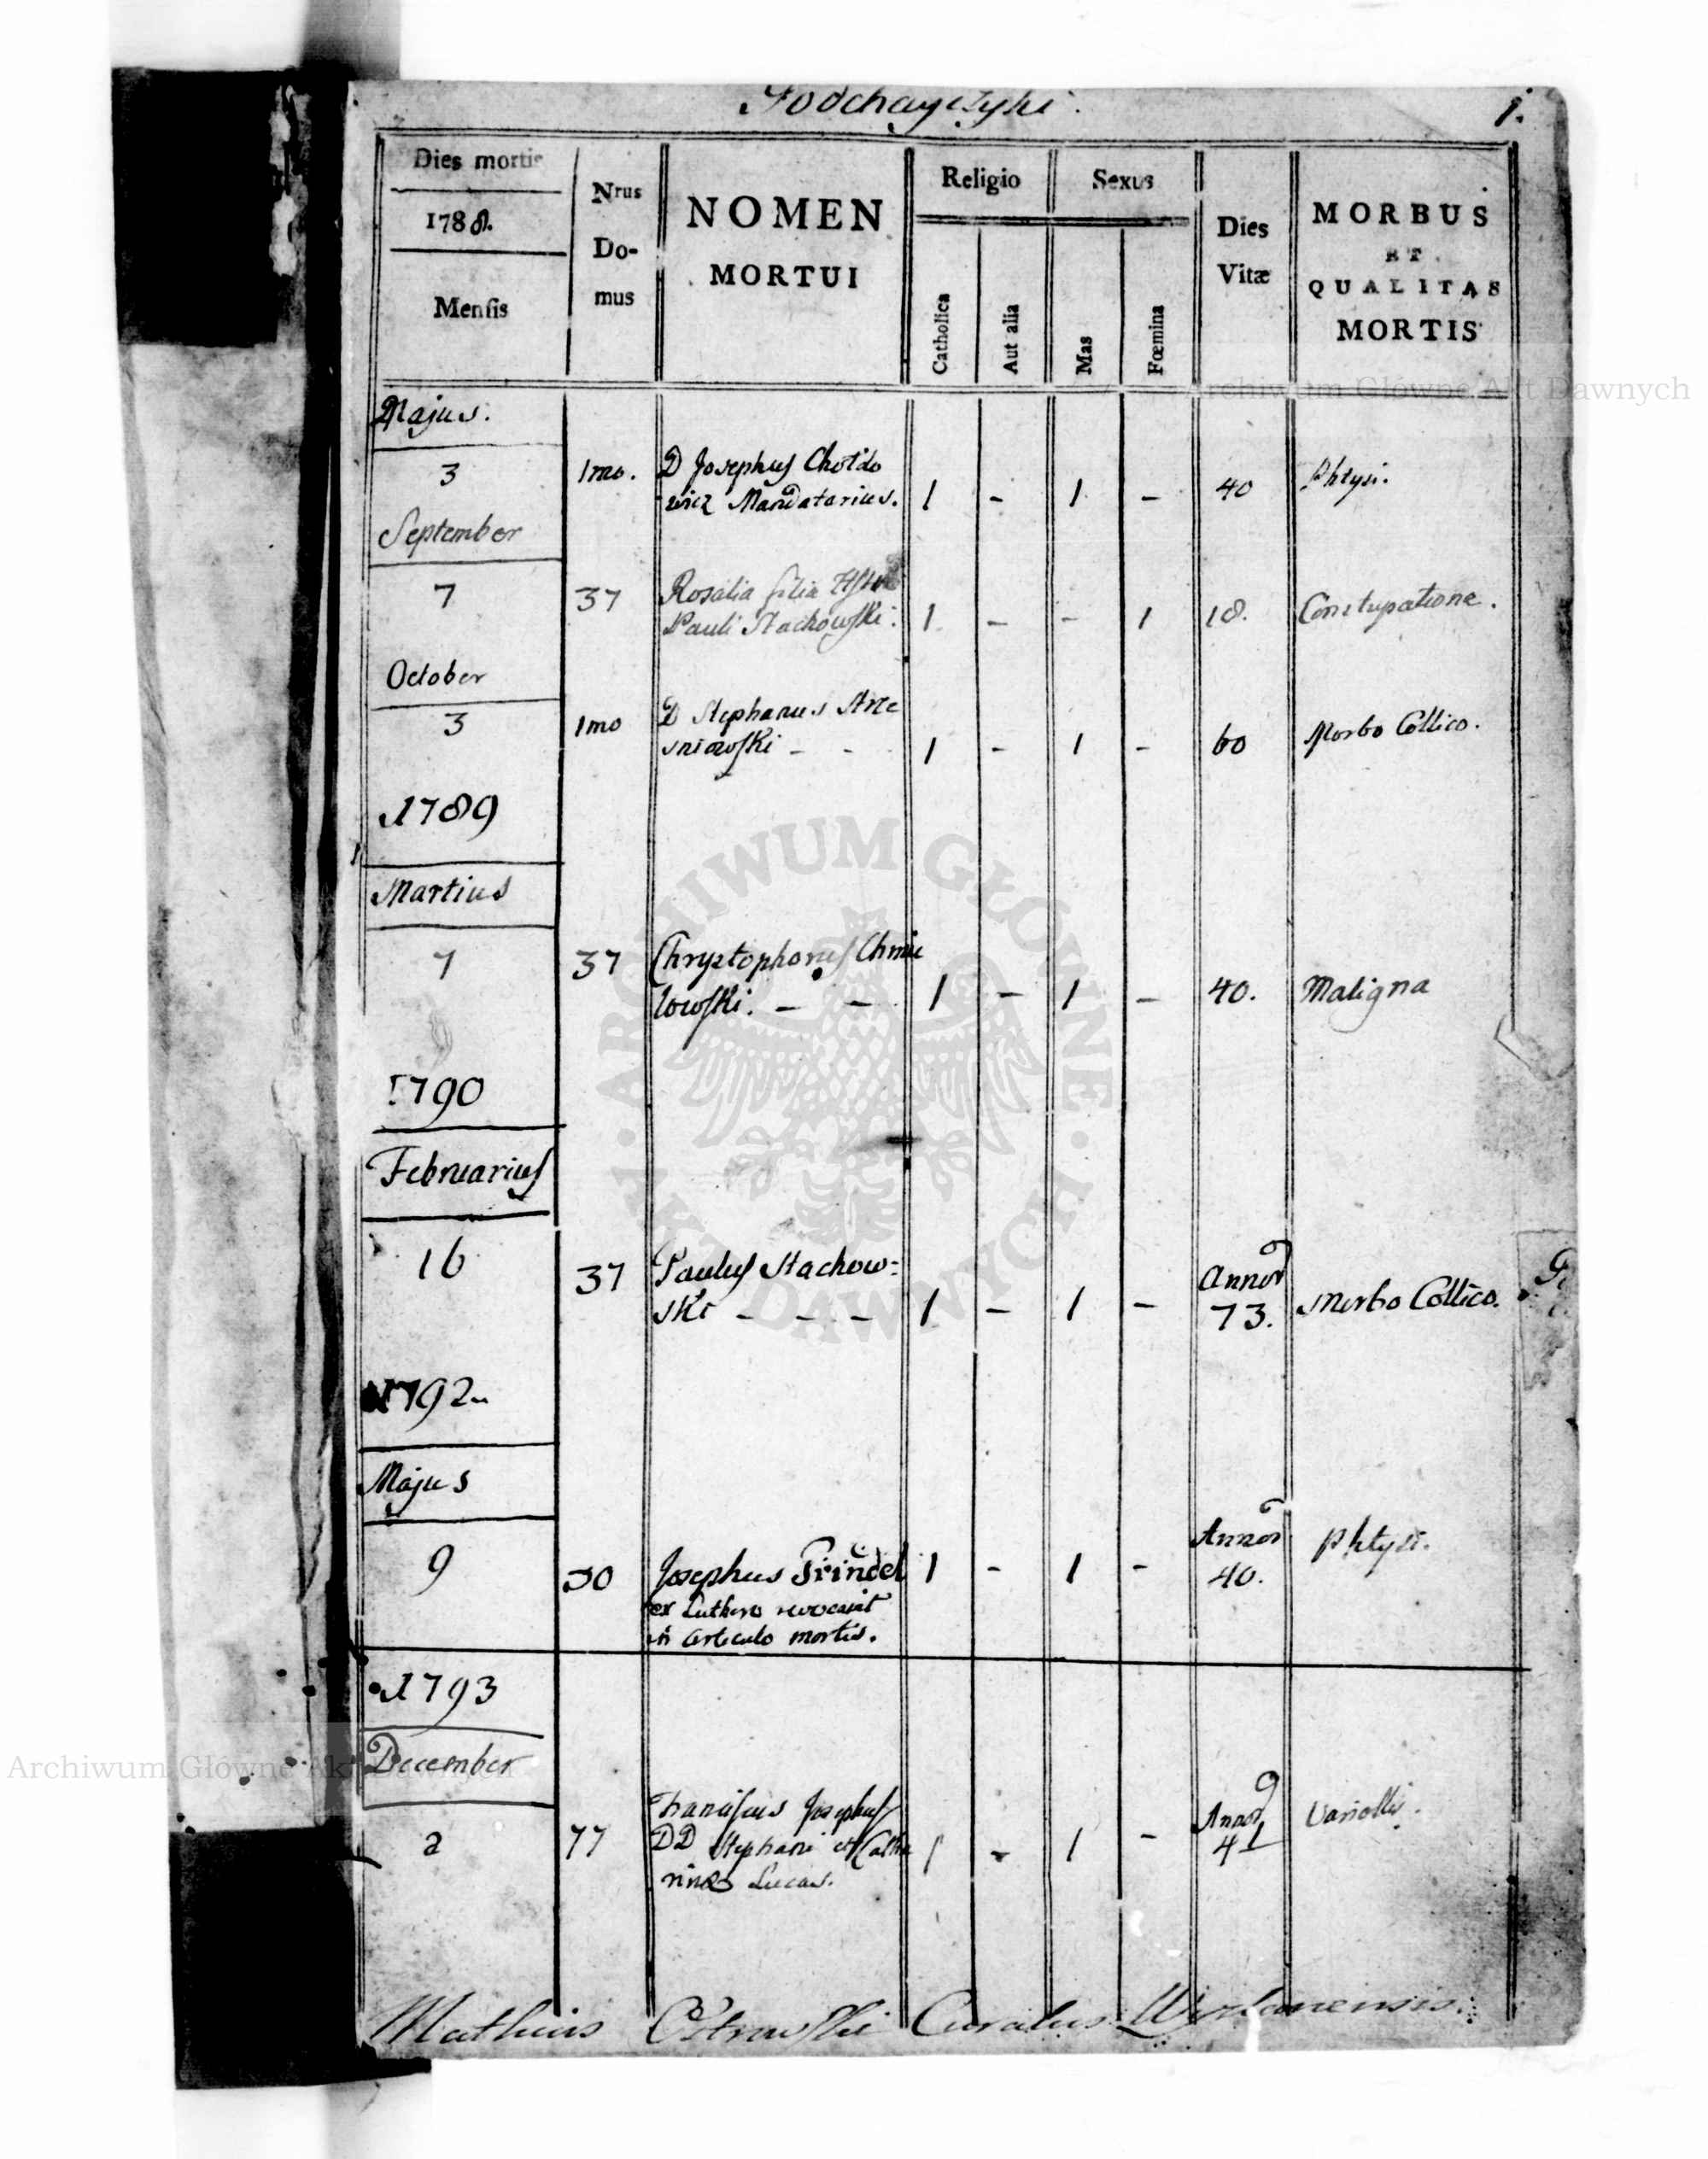 Podhayczyki.
1.
Dies mortis
1788.
Mensis
Nrus
Do-
mus
NOMEN
MORTUI
Religio
Catholica
Aut alia
Sexus
Mas
Fœmina
Dies
Vitæ
MORBUS
ET
QUALITAS
MORTIS
Majus.
3 1mo. D Josephus Chotdo
wicz Mandatarius. 1 - 1 - 40 Phtysi.
September
7 37 Rosalia filia
Pauli Stachowski. 1 - - 1 18. Constupatione.
October
3 1mo D Stephanus Strze
sniowski - - 1 - 1 - 60 Morbo Collico.
1789
Martius
7 37 Chrystophorus Chmie
lowski. - - 1 - 1 - 40. Maligna
1790
Februarius
16 37 Paulus Stachow=
ski - - - 1 - 1 - Annor 73. Morbo Collico.
1792
Majus
9 30 Josephus Prindel 1 - 1 - Annor 40. Phtysi.
ex Luthero revocavit
in articulo mortis.
1793
December
2 77 Franciscus Josephus
DD Stephani et Catha
rinæ Lucas. 1 - 1 - Annor Variollis.
Mathias Ostrowski Curatus
Archiwum Główne Akt Dawnych
ARCHIWUM GŁÓWNE
AKT DAWNYCH
Archiwum Główne Akt Dawnych